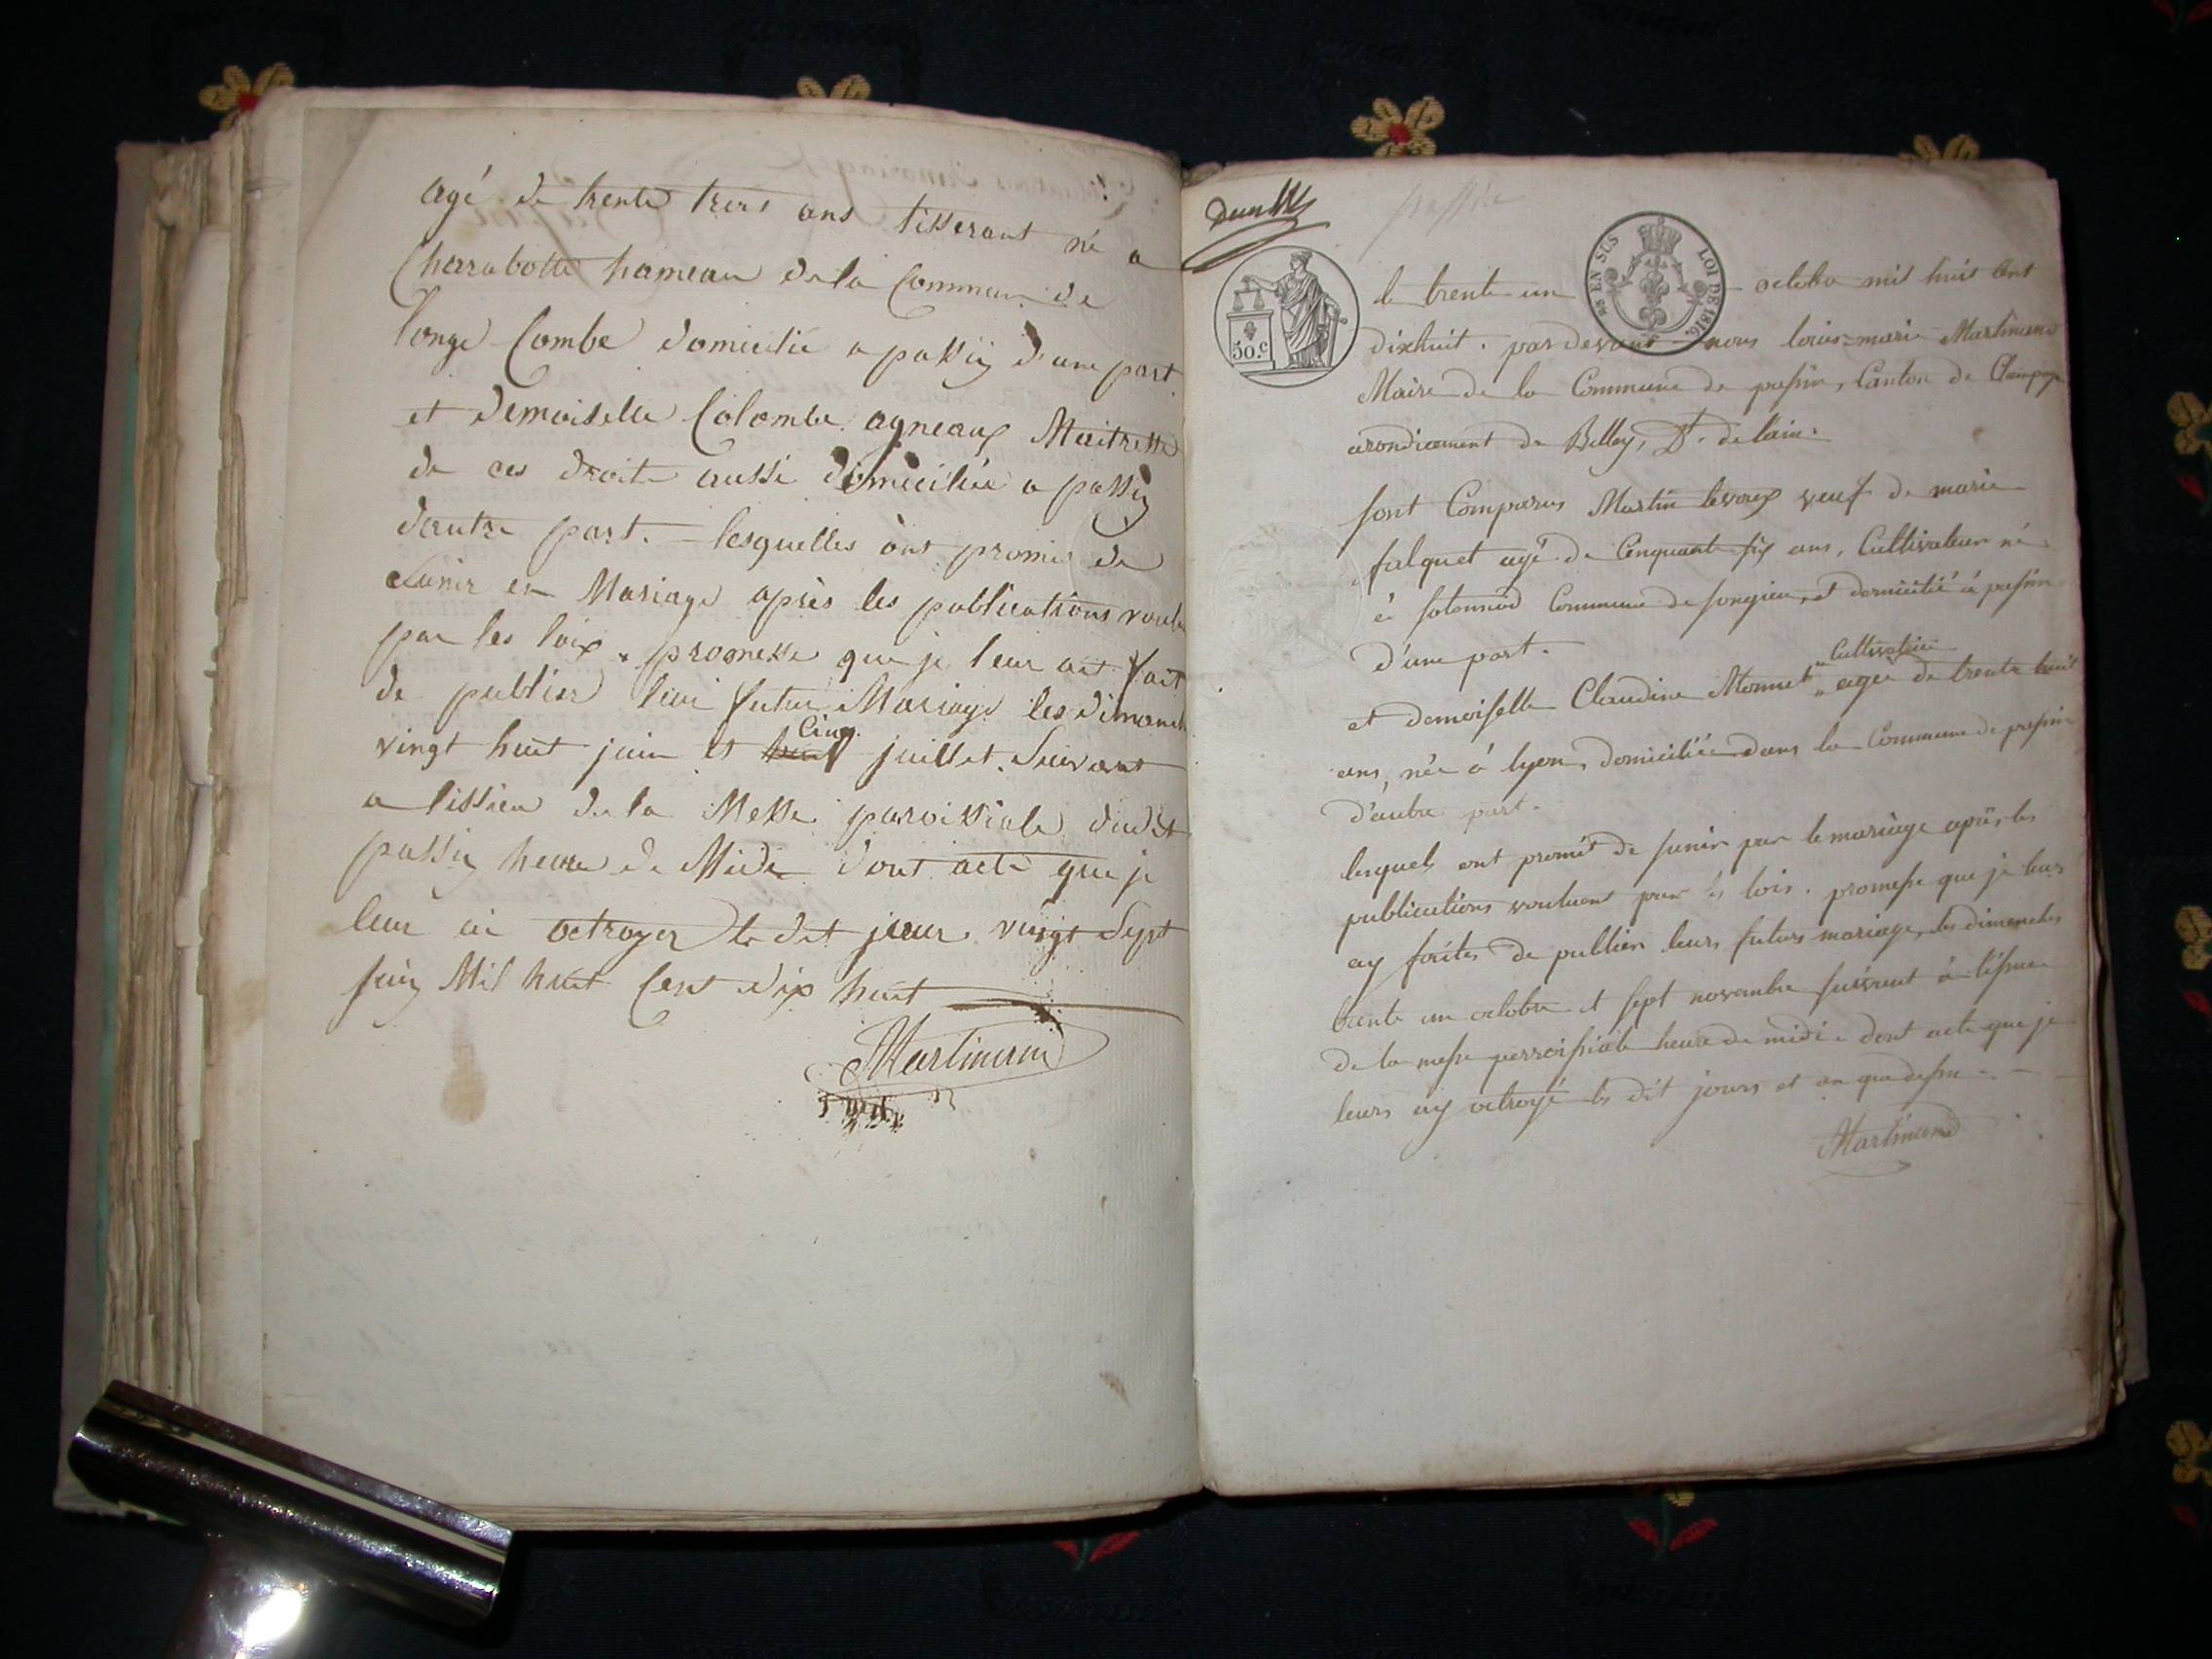 agé de trente trois ans tisserant né a
Charabotte hameau de la Commune de
longe Combe domicilié a passin d'une part
et demoiselle Colombe agneaux Maitresse
de ces droits aussi domiciliée a passin
dautre part. lesquelles ont promis de
sunir en Mariage après les publications voulu
par les loix. promesse que je leur ait fait
de publier leur futur Mariage les dimanch
vingt huit juin et Cinq juillet suivant
a lissieu de la Messe paroissiale dudit
passin heure de Midi dont acte que je
leur ai octroyer le dit jour vingt sept
juin Mil huit Cent dix huit
Martinand
50.c
EN SUS LOI DE 1816.
le trente un octobre mil huit Cent
dixhuit. pardevant nous louis=marie Martinand
Maire de la Commune de passin, Canton de Champag
arondicement de Belley, Dt. de lain.
sont Comparus Martin levoux veuf de marie
falquet agé de Cinquante six ans, Cultivateur né
à sotonnod Commune de songieu, et domicilié à passin
d'une part.
Cultivatrice
et demoiselle Claudine Monnet " agée de trente huit
ans, née à lyon, domiciliée dans la Commune de passin
d'autre part.
lesquels ont promit de sunir par le mariage après les
publications voulues par les lois. promesse que je leurs
ay faites de publier leurs futurs mariage, les dimanches
trente un octobre et sept novembre suivant à lissue
de la messe parroissiale heure de midi. dont acte que je
leurs ay octroyé les dit jours et an que dessus
Martinand